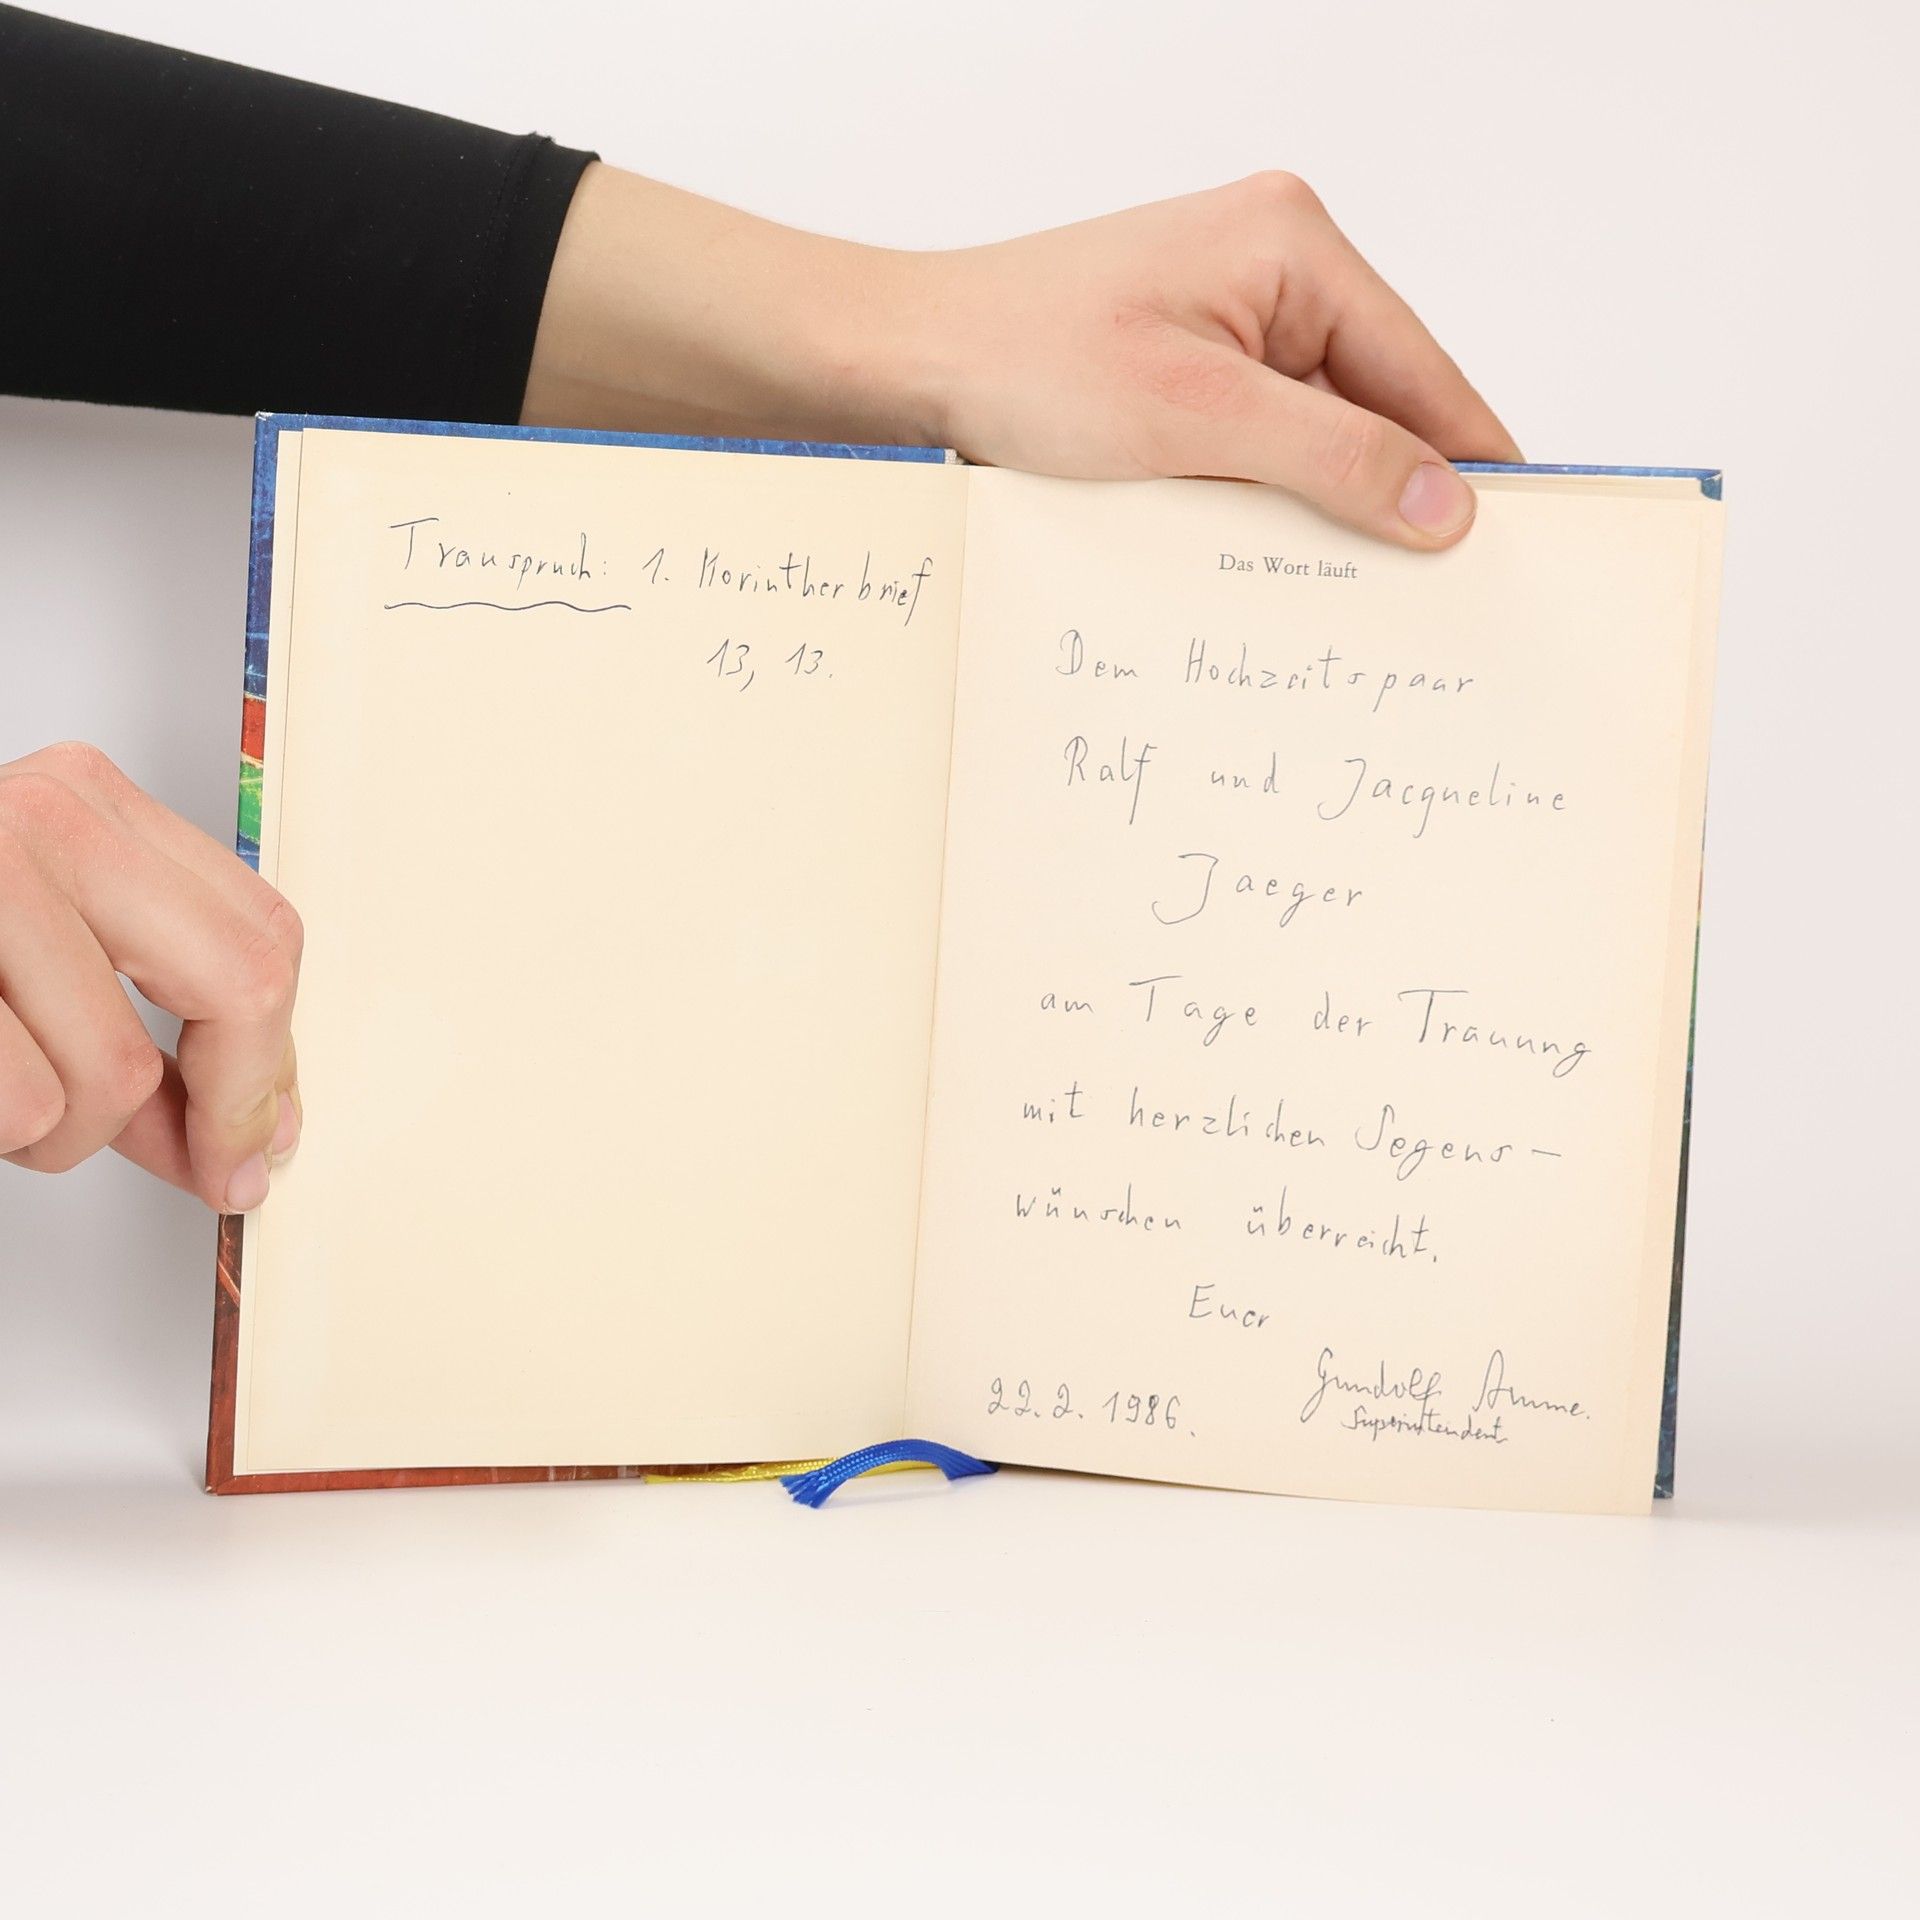 Trauspruch: 1. Korintherbrief
13, 13.
Das Wort läuft
Dem Hochzeitspaar
Ralf und Jacqueline
Jaeger
am Tage der Trauung
mit herzlichen Segens-
wünschen überreicht.
Euer
Gundolf Amme.
Superintendent
22. 2. 1986.